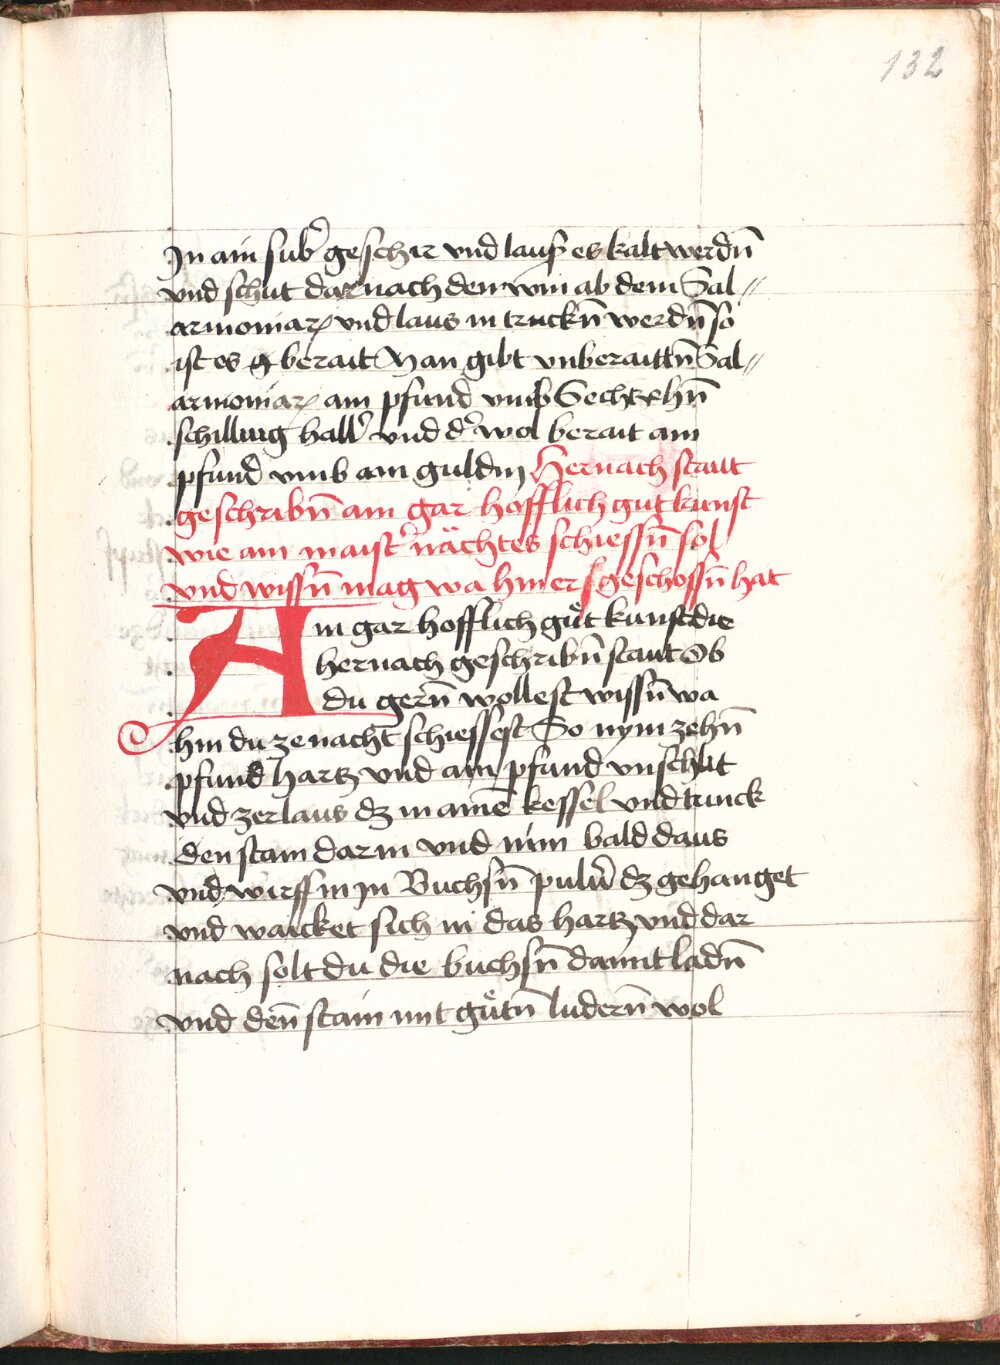 132
In ain sub̾ geschir vnd laus es kalt werdn̄
vnd schüt darnach den win ab dem Sal〃
armoniac vnd laus in truckn̄ werdn̄ so
ist es g berait Man gibt vnberaittn̄ Sal〃
armoniac ain pfund vmb Sechtzehn̄
schilling hall̾ vnd d̾ wol berait ain
pfund vmb ain guldin Hernach staut
geschribn̄ ain gar hofflich gut kunst
wie ain maist̾ nächtes schiessn̄ sol
vnd wissn̄ mag wa hin er geschossn̄ hat
Ain gar hofflich gůt kunst die
hernach geschribn̄ staut Ob
du gern̄ wollest wissn̄ wa
hin du ze nacht schiessest So nym zehn̄
pfund hartz vnd ain pfund vnschlit
vnd zerlaus dz in ainē kessel vnd trinck
den stain darin vnd nim bald daus
vnd wirff in jn Buchsn̄ pulu̾ dz gehanget
vnd waicket sich in das hartz vnd dar
nach solt du die buchsn̄ damit ladn̄
vnd den̄ stain mit gůtn̄ ludern̄ wol